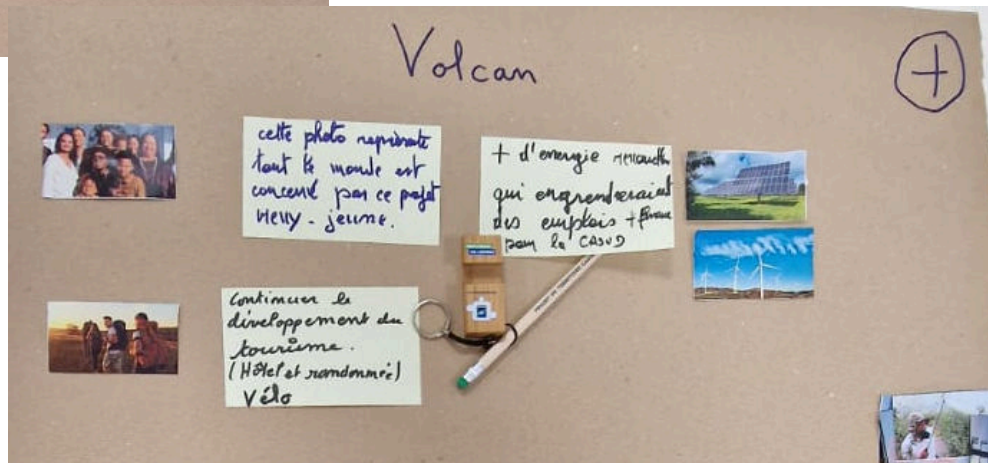 Volcan
+
cette photo représente
tout le monde est
concerné par ce projet
Vieux - jeune.
+ d'energie renouvelable
qui engendreraient
des emplois +
pour la CASUD
Continuer le
développement du
tourisme.
(Hôtel et randonnée)
Vélo